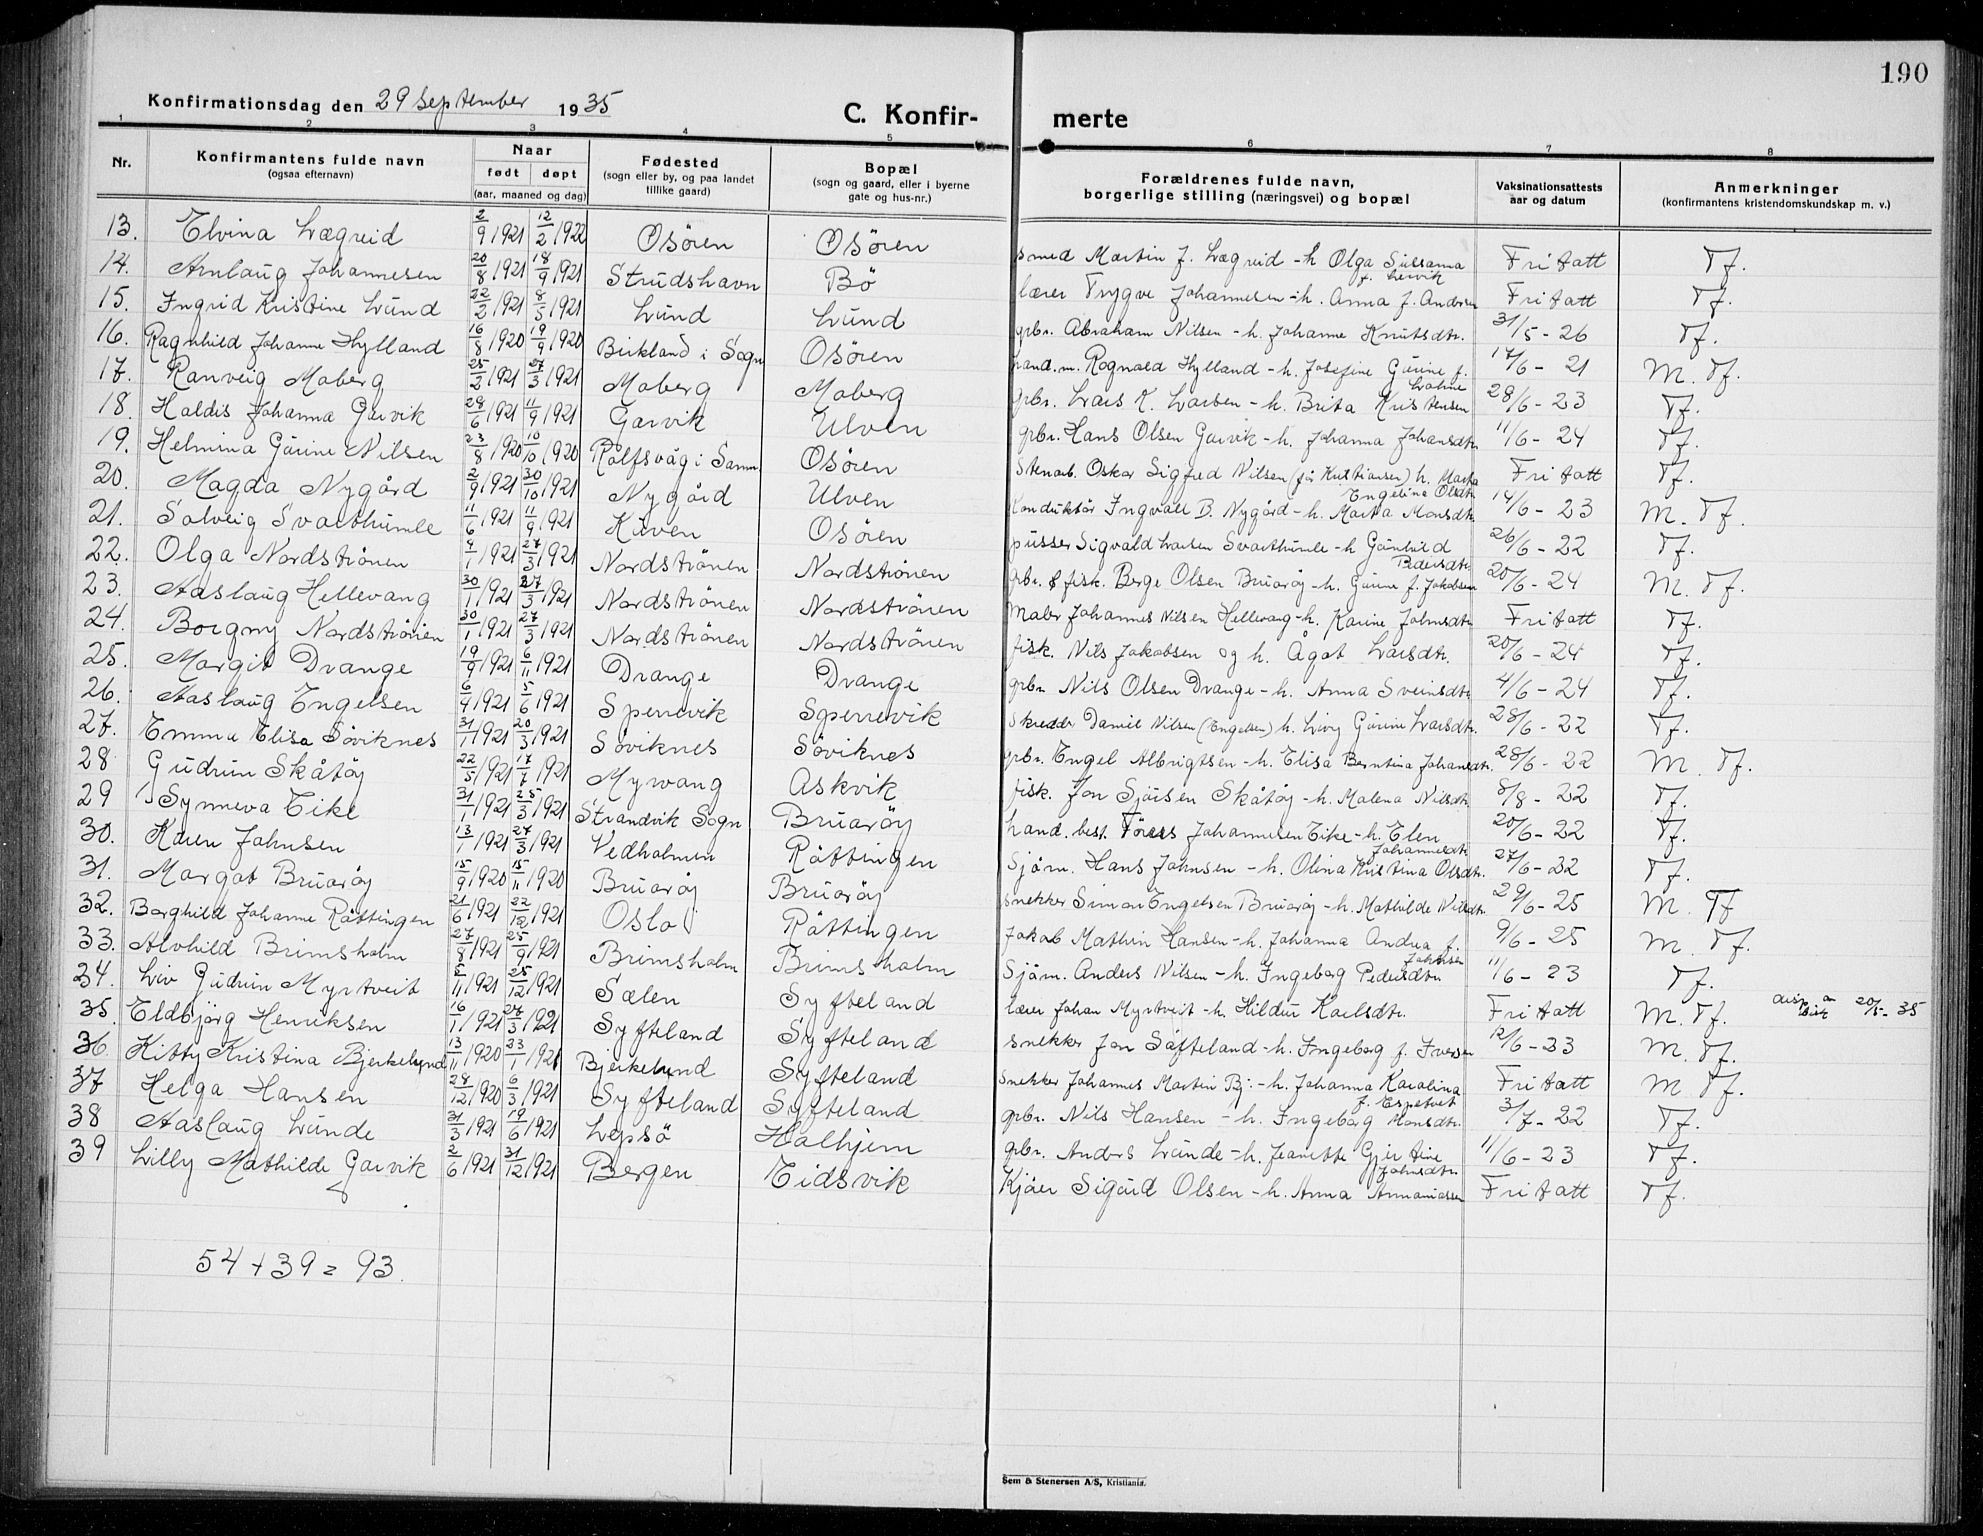 190
Konfirmationsdag den 29 September 1935
C. Konfir- merte
1 2 3 4 5 6 7 8
Nr. | Konfirmantens fulde navn (ogsaa efternavn) | Naar født døpt (aar, maaned og dag) | Fødested (sogn eller by, og paa landet tillike gaard) | Bopæl (sogn og gaard, eller i byerne gate og hus-nr.) | Forældrenes fulde navn, borgerlige stilling (næringsvei) og bopæl | Vaksinationsattests aar og datum | Anmerkninger (konfirmantens kristendomskundskap m. v.)
13. Elvina Lægreid 2/9 1921 12/2 1922 Osören Osören smed Martin J. Lægreid - h Olga Sussanna f. Leivik Fritatt Tf.
14. Arnlaug Johannesen 20/8 1921 18/9 1921 Strudshavn Bö lærer Trygve Johannesen - h. Anna f. Andersen Fritatt Tf.
15. Ingrid Kristine Lund 22/2 1921 8/5 1921 Lund Lund grbr. Abraham Nilsen - h. Johanne Knutsdtr. 31/5 - 26 Tf.
16. Ragnhild Johanne Hylland 16/8 1920 19/9 1920 Birkland i Sogn Osören hand.m. Rognald Hylland - h. Josefine Gurine f. 17/6 - 21 M. Tf.
17. Ranveig Moberg 25/2 1921 27/3 1921 Moberg Moberg grbr. Lars K. Larsen - h. Brita Kristensen 28/6 - 23 Tf.
18. Haldis Johanna Garvik 28/6 1921 11/9 1921 Garvik Ulven grbr. Hans Olsen Garvik - h. Johanna Johansdtr. 11/6 - 24 Tf.
19. Helmina Gurine Nilsen 23/8 1920 10/10 1920 Rolfsvåg i Samn. Osören Stenarb. Oskar Sigfred Nilsen (før Kristiansen) h. Marta Engelina Olsdtr. Fritatt Tf.
20. Magda Nygård 2/9 1921 30/10 1921 Nygård Ulven Konduktör Ingvald B. Nygård - h. Marta Monsdtr. 14/6 - 23 M. Tf.
21. Solveig Svarthumle 11/6 1921 11/9 1921 Kuven Osören pusser Sigvald Larsen Svarthumle - h Gunhild Pedersdtr. 26/6 - 22 Tf.
22. Olga Nordströnen 9/1 1921 27/3 1921 Nordströnen Nordströnen grbr. & fisk. Berge Olsen Bruaröy - h. Gurine f. Jakobsen 20/6 - 24 M. Tf.
23. Aaslaug Hellevang 30/1 1921 27/3 1921 Nordströnen Nordströnen Maler Johannes Nilsen Hellevang - h. Karine Johnsdtr. Fritatt Tf.
24. Borgny Nordströnen 30/1 1921 27/3 1921 Nordströnen Nordströnen fisk. Nils Jakobsen og h. Ågot Larsdtr. 20/6 - 24 Tf.
25. Margit Drange 19/9 1921 6/11 1921 Drange Drange grbr. Nils Olsen Drange - h. Anna Sveinsdtr. 4/6 - 24 Tf.
26. Aaslaug Engelsen 6/4 1921 5/6 1921 Sperrevik Sperrevik skredder Daniel Nilsen (Engelsen) h. Livy Gurine Larsdtr. 28/6 - 22 Tf.
27. Emma Elisa Söviknes 31/1 1921 20/3 1921 Söviknes Söviknes grbr. Engel Albrigtsen - h. Elisa Berntina Johansdtr. 28/6 - 22 M. Tf.
28 Gudrun Skåtöy 22/5 1921 17/7 1921 Myrvang Askvik fisk. Jon Sjursen Skåtöy - h. Malena Nilsdtr. 8/8 - 22 Tf.
29 Synneva Eike 31/1 1921 25/3 1921 Strandvik Sogn Bruaröy hand. best. Tøres Johannesen Eike - h. Elen Johannesdtr. 20/6 - 22 Tf.
30. Karen Johnsen 13/1 1921 27/3 1921 Vedholmen Röttingen Sjöm. Hans Johnsen - h. Olina Kristina Olsdtr. 27/6 - 22 Tf.
31. Margot Bruaröy 15/9 1920 15/11 1920 Bruaröy Bruaröy snekker Simon Engelsen Bruaröy - h. Mathilde Nilsdtr. 29/6 - 25 M. Tf
32. Borghild Johanne Röttingen 21/6 1921 22/12 1921 Oslo Röttingen Jakob Mathin Hansen - h. Johanna Andrea f. Johnsen 9/6 - 25 M. Tf.
33. Alvhild Brimsholm 27/8 1921 25/9 1921 Brimsholm Brimsholm Sjöm. Anders Nilsen - h. Ingeborg Pedersdtr. 11/6 - 23 Tf.
34. Liv Gudrun Myrtveit 5/11 1921 25/12 1921 Sælen Syfteland lærer Johan Myrtveit - h. Hildur Karlsdtr. Fritatt M. Tf. disp. av bisk. 20/5 - 35
35. Eldbjörg Henriksen 16/1 1921 27/3 1921 Syfteland Syfteland snekker Jon Söfteland - h. Ingeborg f. Iversen 12/6 - 33 M. Tf.
36. Kitty Kristina Bjerkelund 13/11 1920 23/1 1921 Bjerkelund Syfteland snekker Johannes Martin Bj. - h. Johanna Karolina f. Espetvet Fritatt M Tf.
37 Helga Hansen 28/12 1920 6/3 1921 Syfteland Syfteland grbr. Nils Hansen - h. Ingeborg Hansdtr. 3/7 - 22 Tf.
38 Aaslaug Lunde 31/3 1921 19/6 1921 Lepsö Halhjem grbr. Anders Lunde - h. Jeanette Gjertine Johnsdtr. 11/6 - 23 Tf.
39 Lilly Mathilde Garvik 2/6 1921 31/12 1921 Bergen Tidsvik Kjörer Sigurd Olsen - h. Anna Annaniassen Fritatt Tf.
54 + 39 = 93.
Sem & Stenersen A/S, Kristiania.